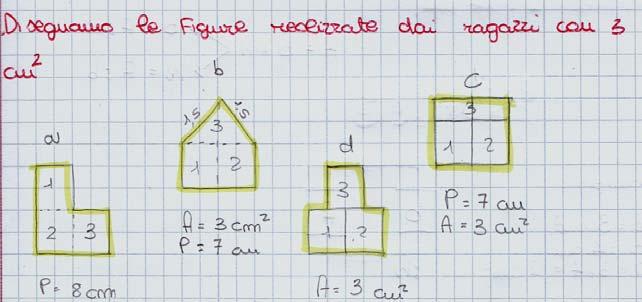 Disegnamo le figure realizzate dai ragazzi con 3
cm²
a
1
2 3
P= 8 cm
b
1,5 1,5
3
1 2
A= 3 cm²
P= 7 cm
d
3
1 2
A= 3 cm²
c
3
1 2
P= 7 cm
A= 3 cm²